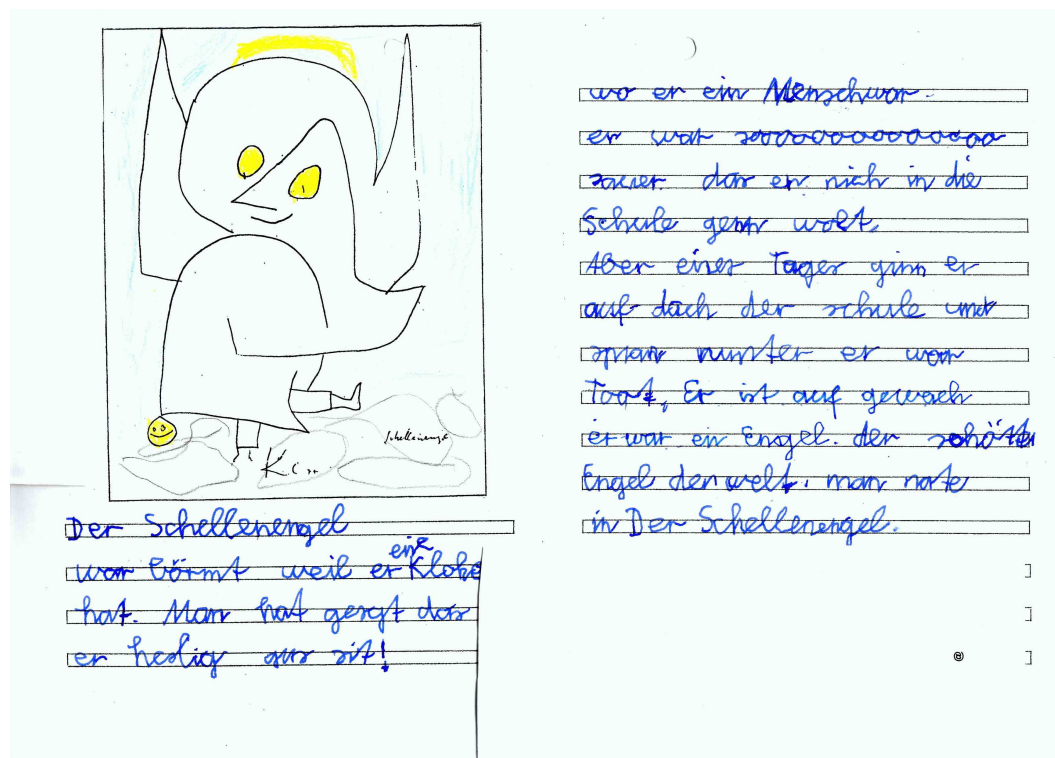 Schellenengel
Der Schellenengel
war börmt weil er eine Kloke
hat. Man hat gesgt das
er heslig aus sit!
wo er ein Mensch war.
er war sooooooooooooo
sauer das er nich in die
Schule genn wolt.
Aber eines Tages ginn er
auf dach der schule und
spran runter er war
Toot, Er ist auf gewach
er war ein Engel. der schötte
Engel der welt. man nate
in Der Schellenengel.
@